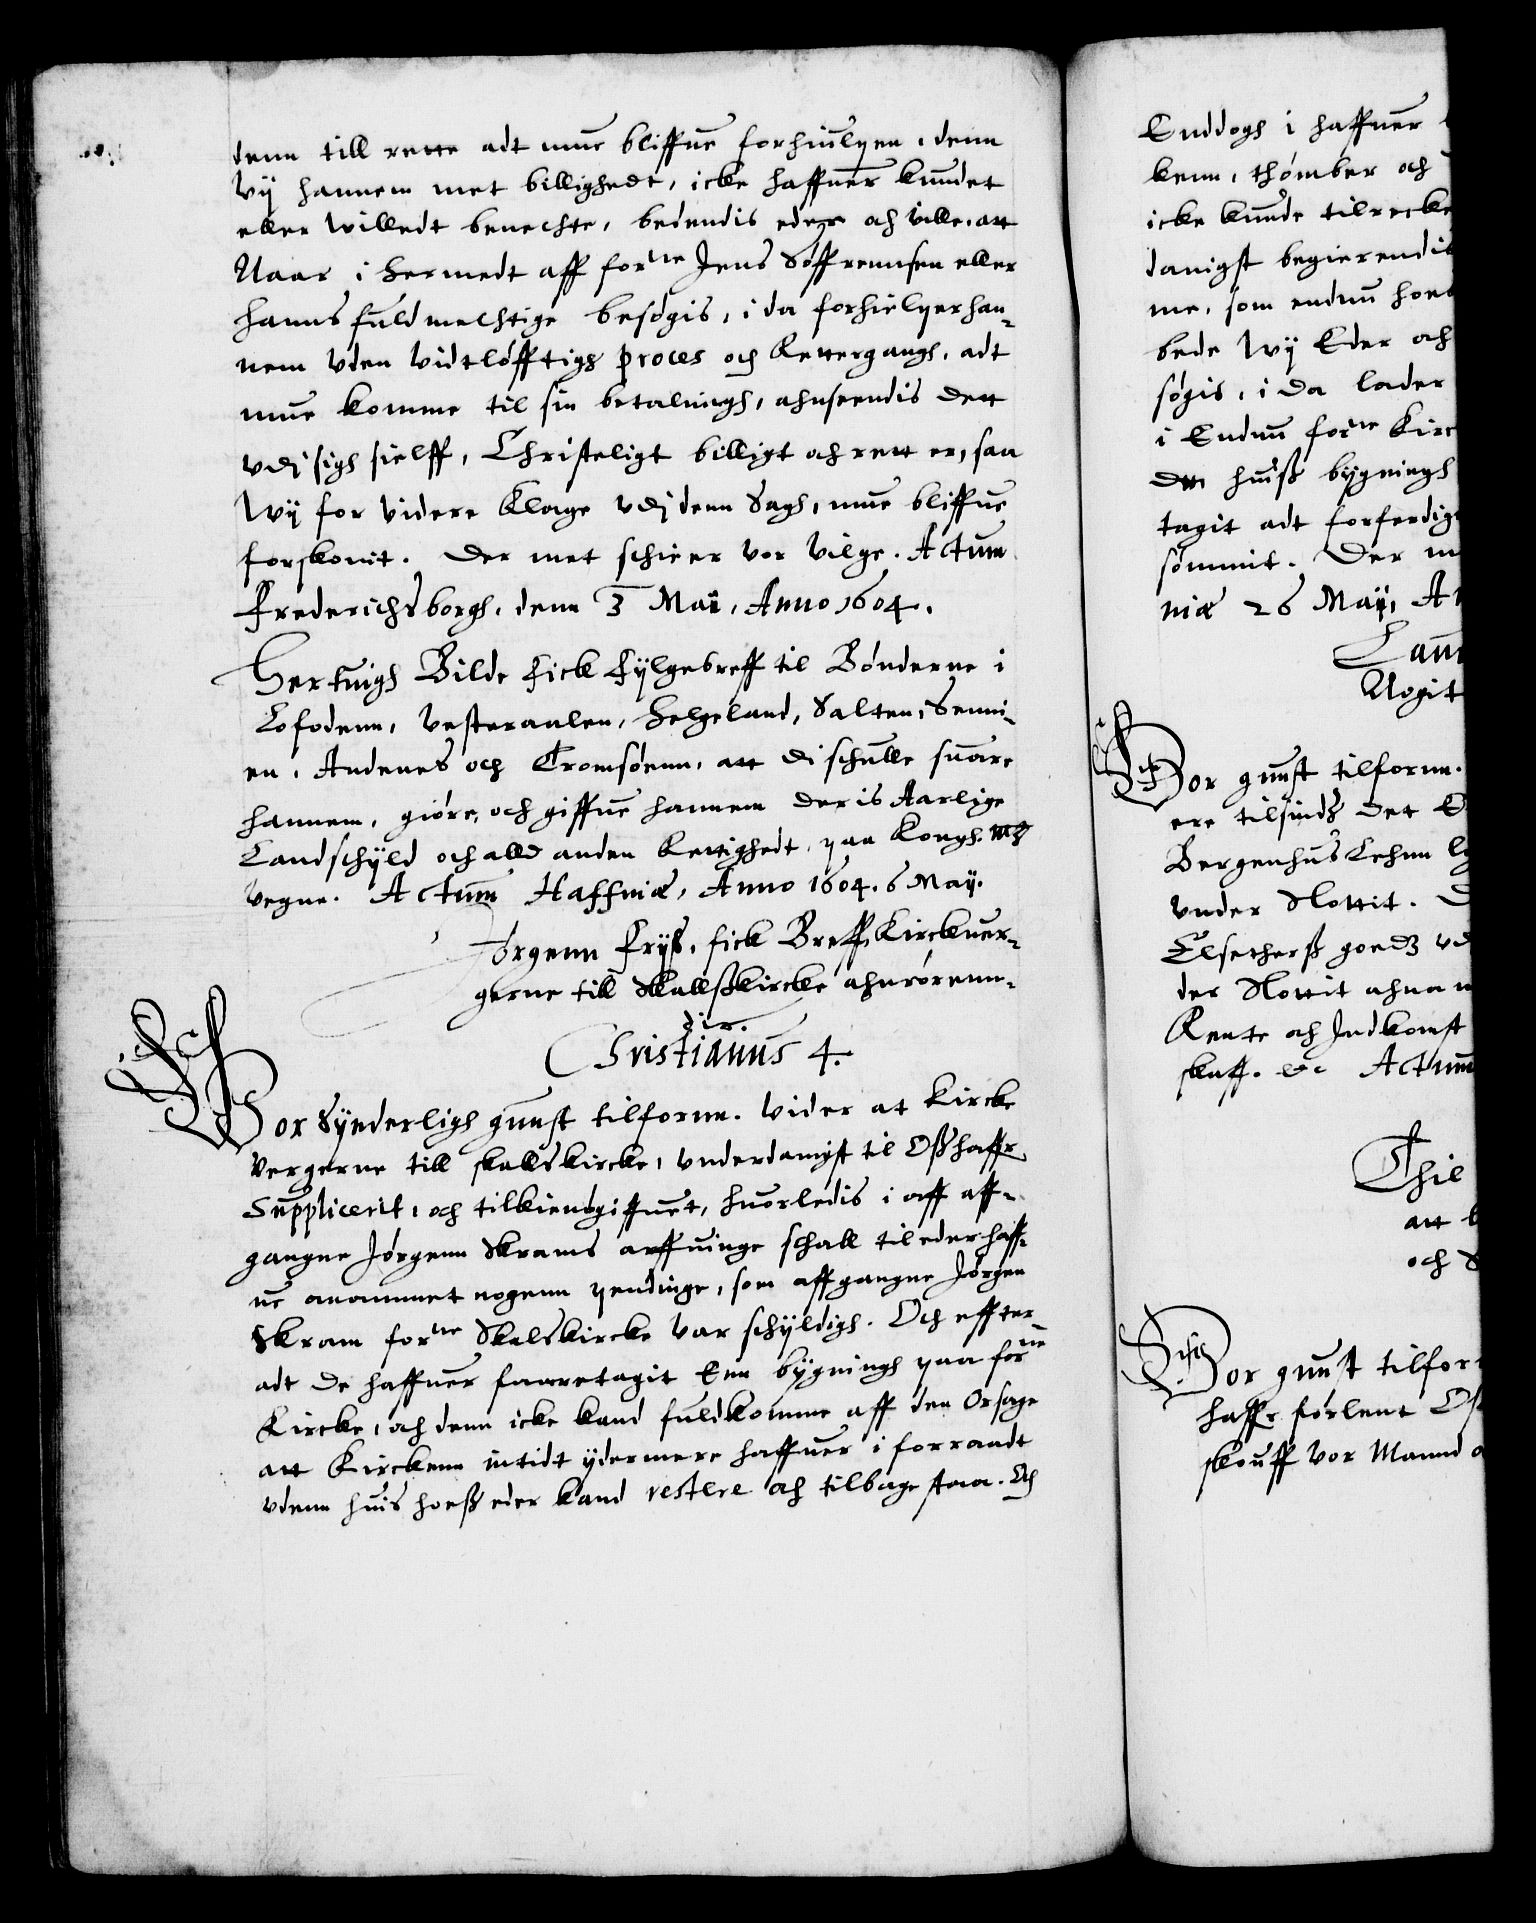 denn till rette adt mue bliffue forhiulpen, denn
Wij hannem met billighedt, icke haffuer kundet
eller willedt benechte, bedendis eder och wille, att
Naar i hermedt aff forne Jens Søffrennsen eller
hanns fuldmechtige besøgis, i da forhielper han-
nem vden vidtløfftigh proces och Rettergangh, adt
mue komme til sin betalningh, ahnseendis dett
vdj sigh sielff, Christeligt billigt och rett er, saa
Wij for videre Klage vdj denn Sagh, mue bliffue
forskonit. Der met schier vor Vilge. Actum
Frederichsborgh, denn 3 Maii, Anno 1604.
Hertuigh Bilde fick fylgebreff til Bønderne i
Lofodenn, Vesteraalen, Helgeland, Salten, Senni-
en, Andenes och Tromsøenn, att di schulle suare
hannem, giøre, och giffue hannem deris Aarlige
Landschyld och alld anden Rettighedt, paa Kongh. Mtz
vegne. Actum Haffniæ, Anno 1604. 6 Maij.
Jørgenn Fryss, fick Breff, Kirckuer-
gerne till Skallsskircke ahnrørenn-
dis.
Christianus 4.
Vor Synderligh gunst tilfornn. Vider at Kircke
Vergerne till skallskircke, vnderdanigst til Oss haffr
Supplicerit, och tilkiendgiffuet, huorledis i aff aff-
gangne Jørgenn Skrams arffuinge schall til eder haff-
ue anammet nogenn pendinge, som affgangne Jørgen
Skram forne Skalskircke var schyldigh. Och effter
adt de haffuer faaretagit Enn bygningh paa forne
Kircke, och denn icke kand fuldkomme aff den Orsage
att Kirckenn intidt ydermere haffuer i forraadt
vdenn huis hoess eder kand restere och tilbage staa. Och
Enddogh i haffuer
kenn, thømber och
icke kunde tilrecke
danigst begierendis
me, som endnu hoes
bede Wij Eder och
søgis, i da lader
i Endnu forne Kirc
dtt huiss bygningh
tagit adt forferdig
sømmit. Der m
niæ 26 Maij, A
Nogit
Vor gunst tilfornn.
ere tilsindz det E
Bergenhus Lehnn
vnder Slottit. D
Elsetherss goedz vd
der Slottit ahna
Rente och Indkomst
skaff. &c Actum
Thil
att
och
Vor gunst tilfor
haffr forlent Os
skouff vor Mannd